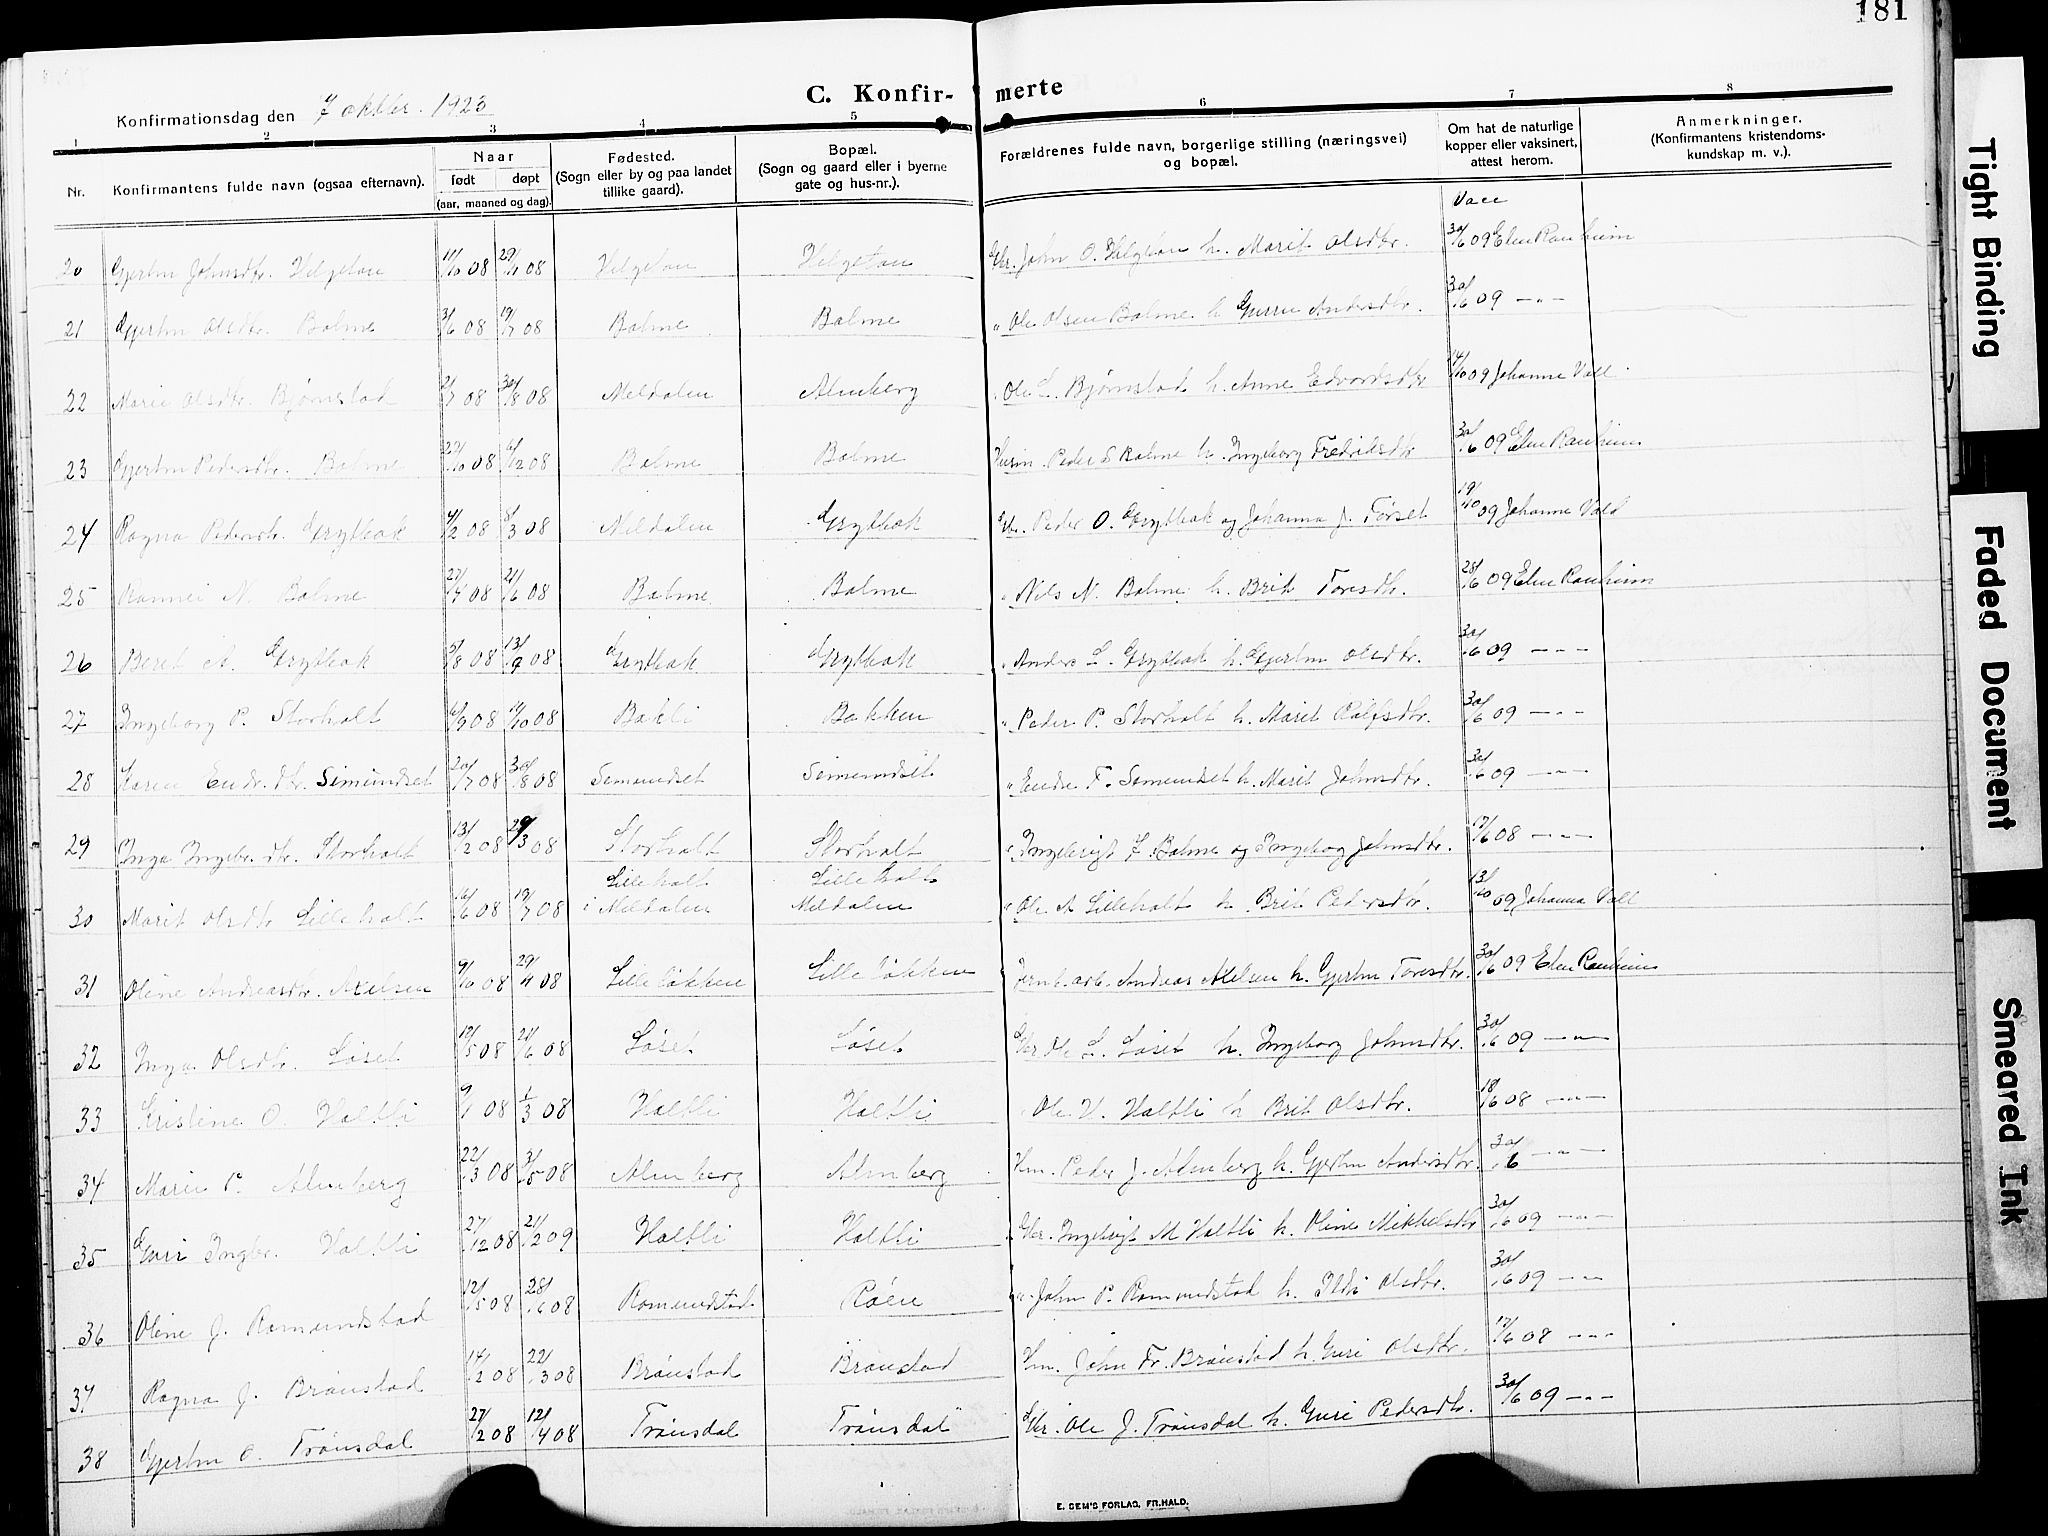 181
C. Konfir- merte
Konfirmationsdag den 7 oktbr. 1923
1 2 3 4 5 6 7 8
Nr. Konfirmantens fulde navn (ogsaa efternavn). Naar født døpt (aar, maaned og dag). Fødested. (Sogn eller by og paa landet tillike gaard). Bopæl. (Sogn og gaard eller i byerne gate og hus-nr.). Forældrenes fulde navn, borgerlige stilling (næringsvei) og bopæl. Om hat de naturlige kopper eller vaksinert, attest herom. Anmerkninger. (Konfirmantens kristendoms-kundskap m. v.).
Vacc
20 Gjertru Johnsdtr. Helgetun 11/10 08 29/11 08 Helgetun Helgetun Gbr. John O. Helgetun h. Marit Olsdtr. 30/6 09 Elen Ranheim
21 Gjertru Olsdtr. Bolme 3/6 08 19/7 08 Bolme Bolme " Ole Olsen Bolme h. Guru Andersdtr. 30/6 09 — " —
22 Marie Olsdtr. Bjørnstad 2/7 08 30/8 08 Meldalen Almberg Ole L. Bjørnstad h. Anne Edvardsdtr 14/10 09 Johanne Vall
23 Gjertru Pedersdtr. Bolme 27/10 08 6/12 08 Bolme Bolme Husm. Peder S Bolme h. Ingeborg Fredriksdtr 30/6 09 Elen Ranheim
24 Ragna Pedersdtr. Grytbak 4/2 08 8/3 08 Meldalen Grytbak Gbr. Peder O. Grytbak og Johanna J. Førset 19/10 09 Johanne Vald
25 Rannei N. Bolme 27/4 08 21/6 08 Bolme Bolme Nils N. Bolme h. Brit Toresdtr. 28/6 09 Elen Ranheim
26 Beret A. Grytbak 5/8 08 13/9 08 Grytbak Grytbak " Anders L. Grytbak h. Gjertru Olsdtr. 30/6 09 — " —
27 Ingeborg P. Storholt 6/9 08 11/10 08 Bakli Bakken " Peder P. Storholt h. Marit Rolfsdtr. 30/6 09 — " —
28 Karen Endr. dtr. Simundset 20/7 08 30/8 08 Semundset Simundset " Endre F. Semundset h. Marit Johnsdtr. 30/6 09 — " —
29 Inga Ingebr. dtr. Storholt 13/2 08 29/3 08 Storholt Storholt " Ingebrigt J. Bolme og Ingeborg Johnsdtr. 17/6 08 — " —
Lilleholt Lilleholt
30 Marit Olsdtr Lilleholt 16/6 08 19/7 08 i Meldalen Meldalen " Ole A Lilleholt h Brit Pedersdtr. 13/10 09 Johanna Vall
31 Oline Andreasdtr. Axelsen 9/10 08 29/11 08 Lilleløkken Lilleløkken Jernb. arb. Andreas Axelsen h. Gjertru Toresdtr. 30/6 09 Elen Ranheim
32 Inga Olsdtr. Løset 12/5 08 21/6 08 Løset Løset Gbr Ole L. Løset h. Ingeborg Johnsdtr. 30/6 09 — " —
33 Kristine O. Holtli 9/1 08 1/3 08 Holtli Holtli Ole H. Holtli h Brit Olsdtr. 18/6 08 — " —
34 Marie P. Almberg 22/3 08 3/5 08 Almberg Almberg Hm. Peder J. Almberg h. Gjertru Andersdtr. 30/6 — " —
35 Guri Ingbr. Holtli 27/12 08 21/2 09 Holtli Holtli Gbr. Ingebrigt M Holtli h. Oline Mikkelsdtr 30/6 09 — " —
36 Oline J. Romundstad 12/5 08 28/6 08 Romundstad Röen " John P. Romundstad h. Ildri Olsdtr. 30/6 09 — " —
37 Ragna J. Brönstad 14/2 08 22/3 08 Brönstad Brönstad Hm. John Fr. Brönstad h. Guri Olsdtr. 17/6 08 — " —
38 Gjertru O. Trönsdal 27/2 08 12/4 08 Trönsdal Trönsdal Gbr. Ole J. Trönsdal h. Guri Pedersdtr. 30/6 09 — " —
E. SEM'S FORLAG, FR.HALD.
Tight Binding
Faded Document
Smeared Ink